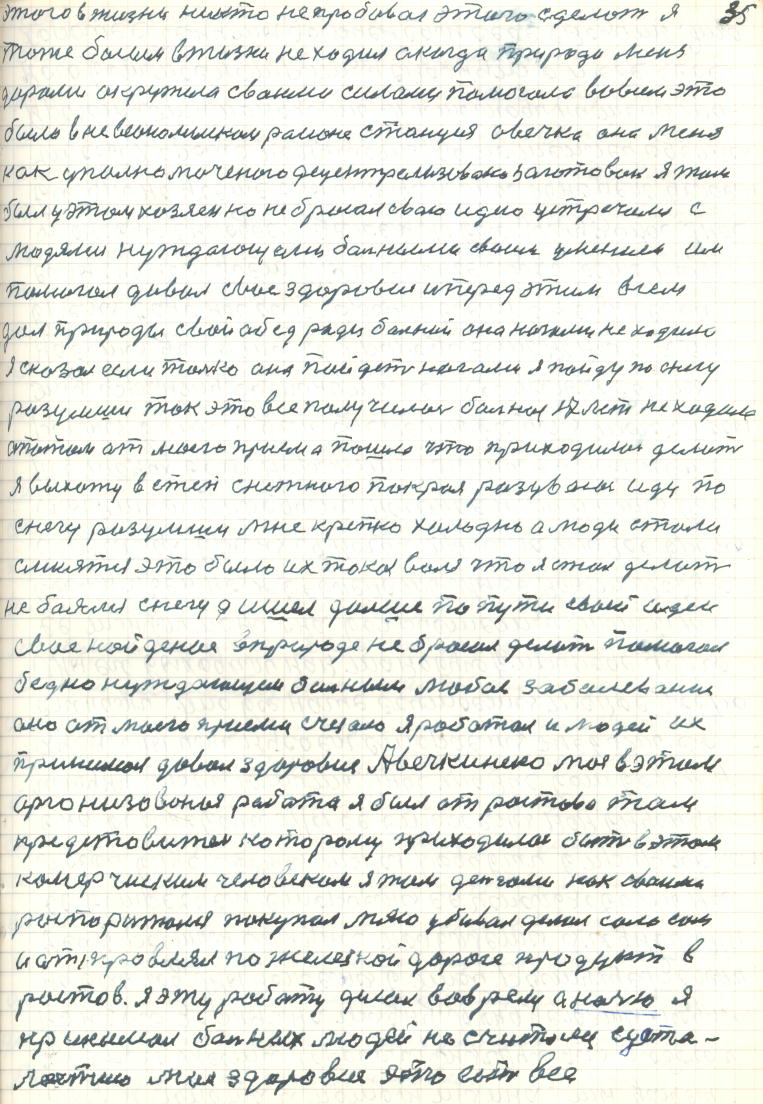 этого в жизни никто не пробовал этого сделать я 35
тоже болим в жизни не ходил а когда природа меня
дорали окружила своими силами помогала вовсем это
было в невеономиском раионе станция овечка она меня
как уполномоченого децентрализовано заготовок я там
был у этом хозяен но не бросал сваю идею устречали с
людями нуждающими болными своим умением им
помогал давал свое здоровие иперед этим всем
дал природы свой обед ради болной она ногами не ходило
я сказал если толко она пойдеть ногами я пойду по снегу
разумши так это все получилос болная 17 лет не ходила
опотом от моего приема пошла что приходилос делат
я выхожу в степ снежного покроя разуваюс иду по
снегу разумши мне крепко холодно а люди стали
смиятся это было их такая воля что я стал делат
не баялся снегу я ишел далше по пути своий идеи
свое найденое в природе не бросал делат помогал
бедно нуждающем болным любое заболевания
оно от моего приема счезало я работал и людей их
принимал давал здоровие Авечкинеко моя в этом
организованоя работа я был от ростова там
предстовител которому приходилос быть в этом
комерчиским человеком я там денгами как своими
роспорижался покупал мясо убивал делал сало сам
и отправлял по железной дороге продукт в
ростов. я эту работу делал вовремя а ночю я
принимал болных людей не считали суста-
лостию мое здоровие это есть все